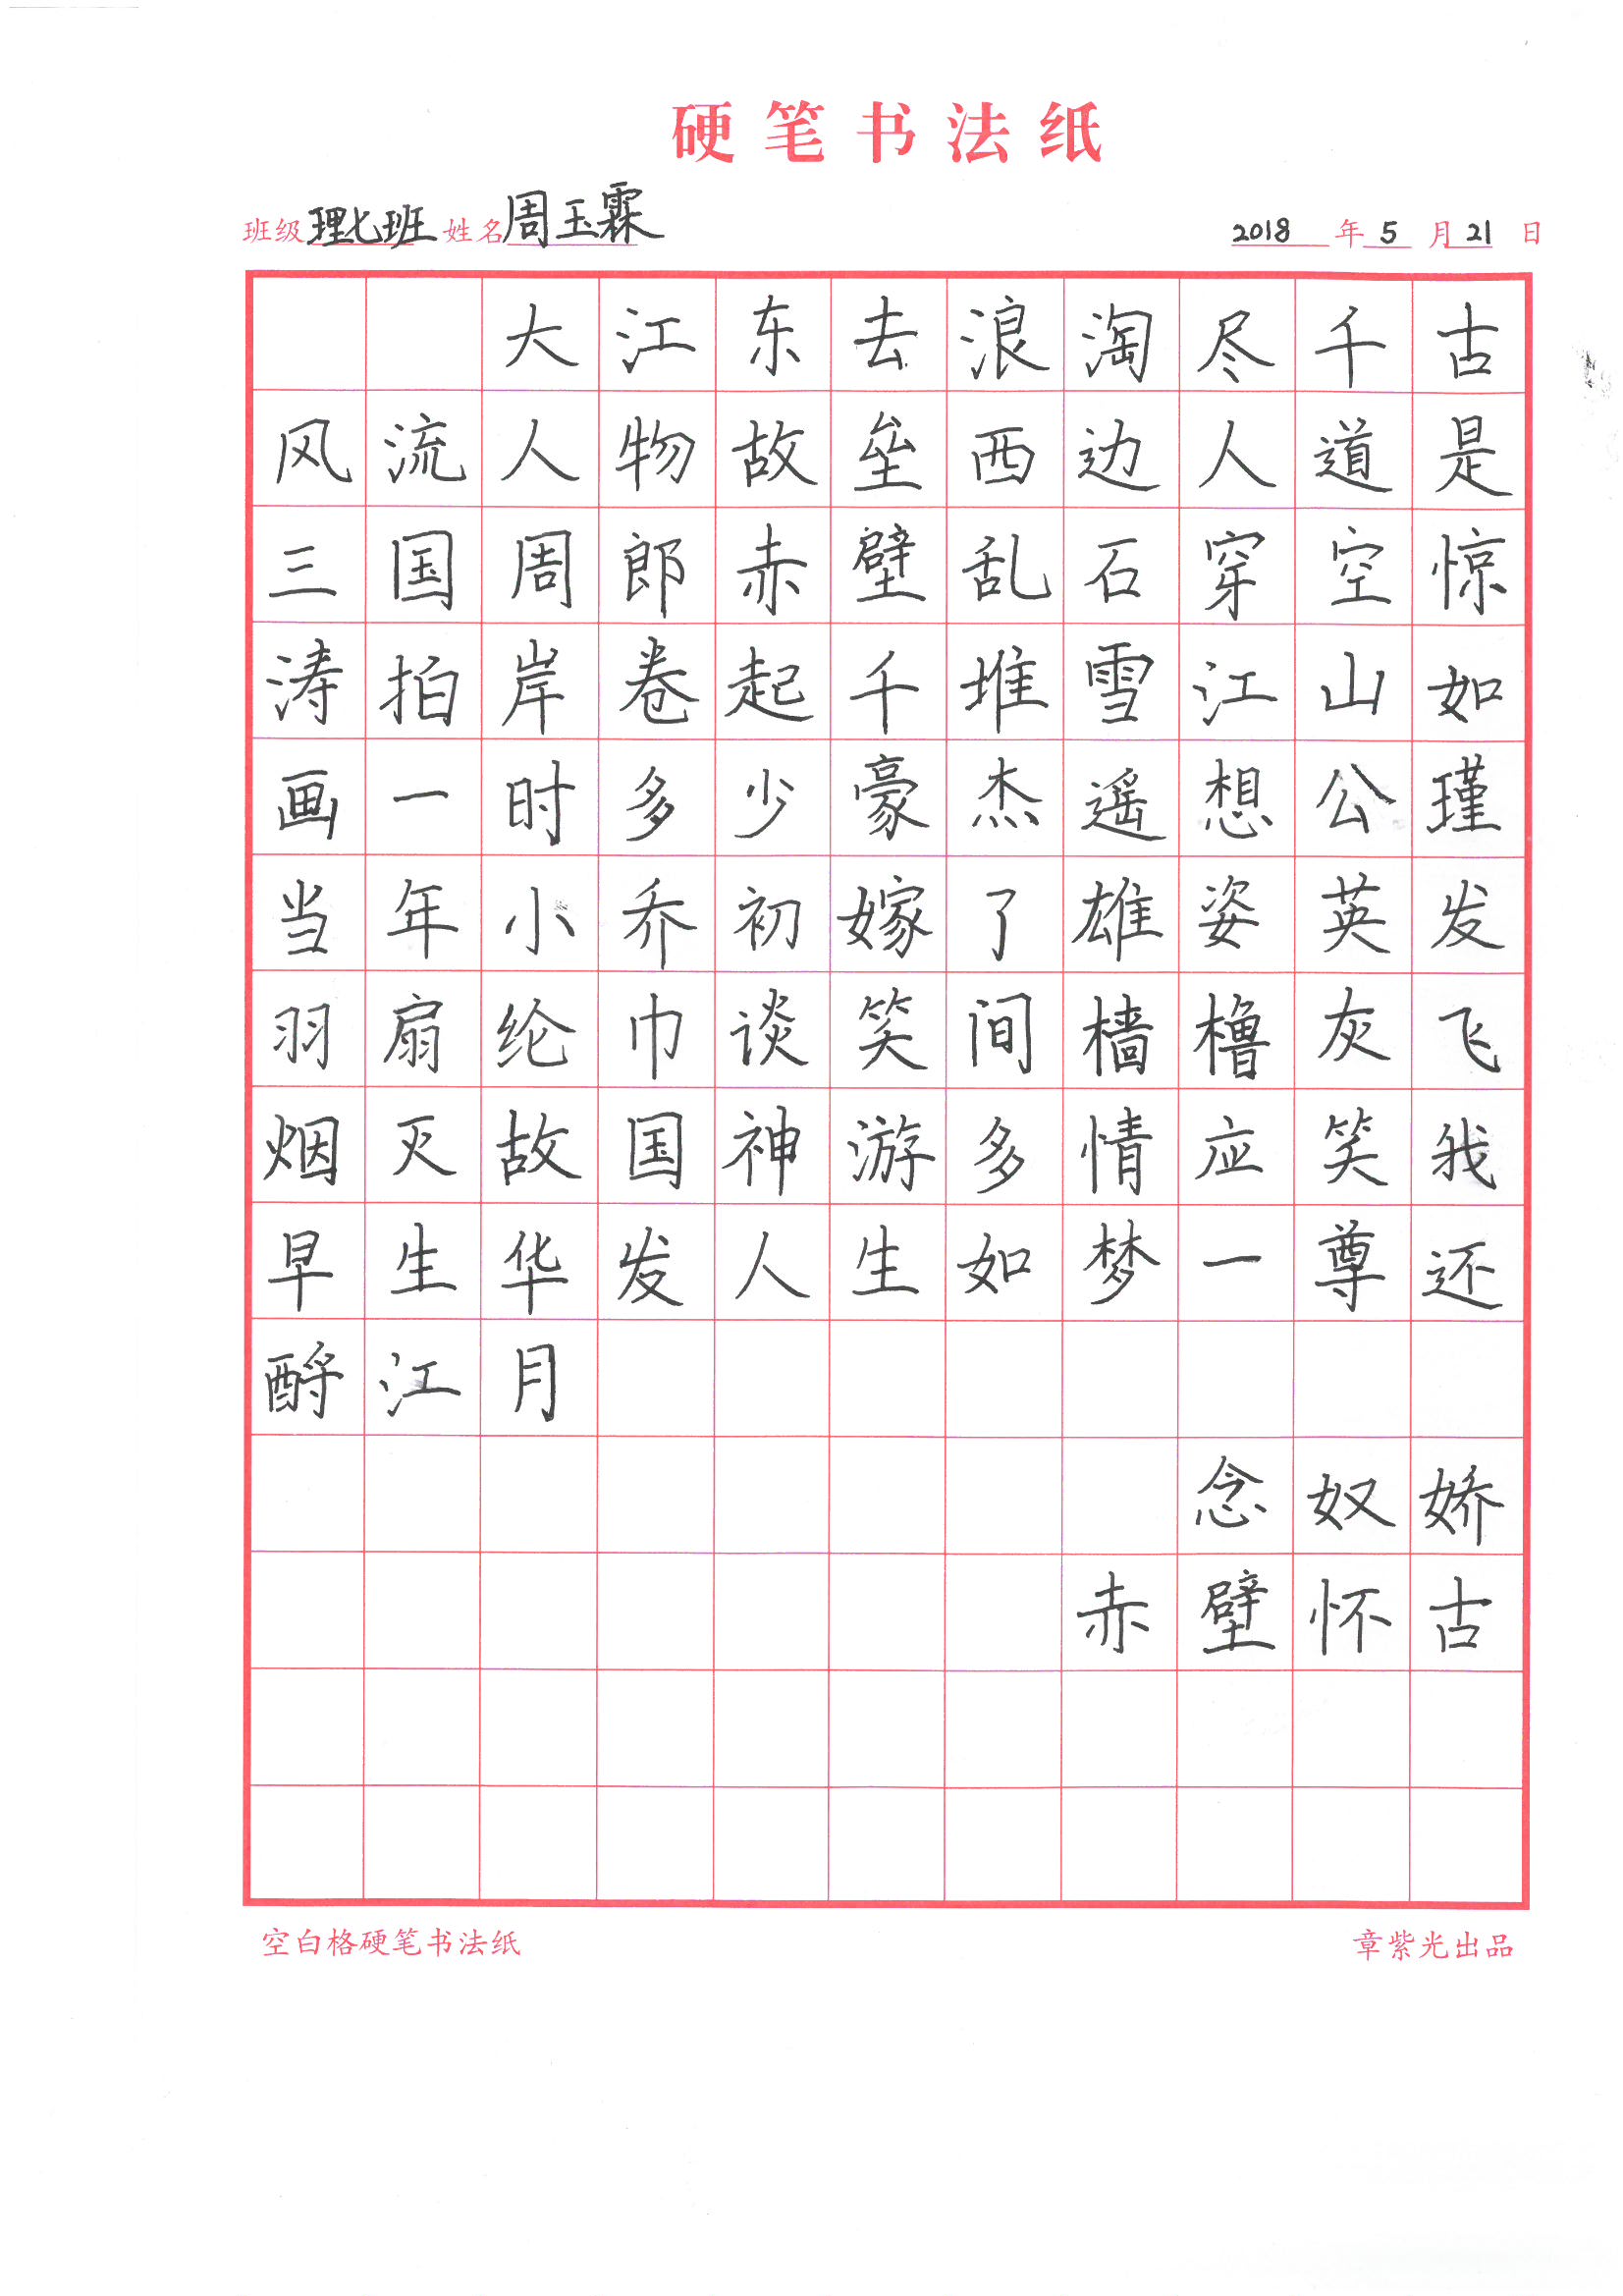 硬笔书法纸
班级 理七班 姓名 周玉霖 2018 年 5 月 21 日
大江东去浪淘尽千古
风流人物故垒西边人道是
三国周郎赤壁乱石穿空惊
涛拍岸卷起千堆雪江山如
画一时多少豪杰遥想公瑾
当年小乔初嫁了雄姿英发
羽扇纶巾谈笑间樯橹灰飞
烟灭故国神游多情应笑我
早生华发人生如梦一尊还
酹江月
念奴娇
赤壁怀古
空白格硬笔书法纸 章紫光出品